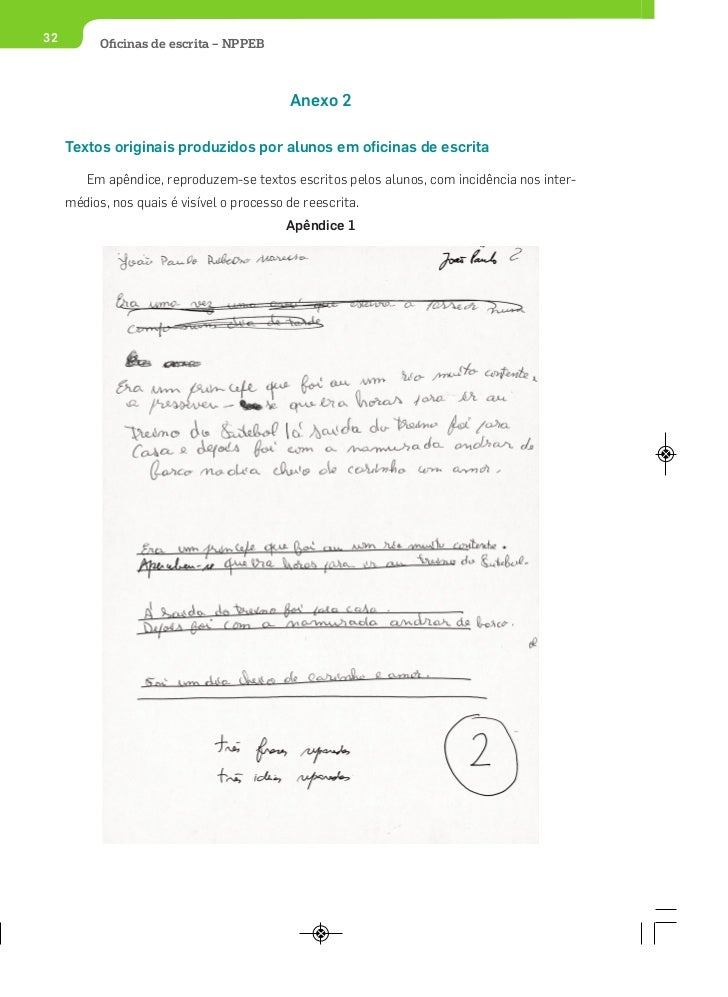 32
Oficinas de escrita – NPPEB
Anexo 2
Textos originais produzidos por alunos em oficinas de escrita
Em apêndice, reproduzem-se textos escritos pelos alunos, com incidência nos inter-
médios, nos quais é visível o processo de reescrita.
Apêndice 1
João Paulo Ribeiro João Paulo 2
Era uma vez uma que estava a num
dia de tarde
Era um princepe que foi au um rio muito contente.
a - se que era horas para ir au
treino do Futebol lá saida do treino foi para
Casa e depois foi com a namurada andrar de
barco no dia cheio de carinho com amor.
Era um princepe que foi au um rio muito contente.
Apercebeu-se que era horas para ir au treino do Futebol.
À saida do treino foi para casa.
Depois foi com a namurada andrar de barco.
Foi um dia cheio de carinho e amor.
três frases separadas
três ideias separadas
2